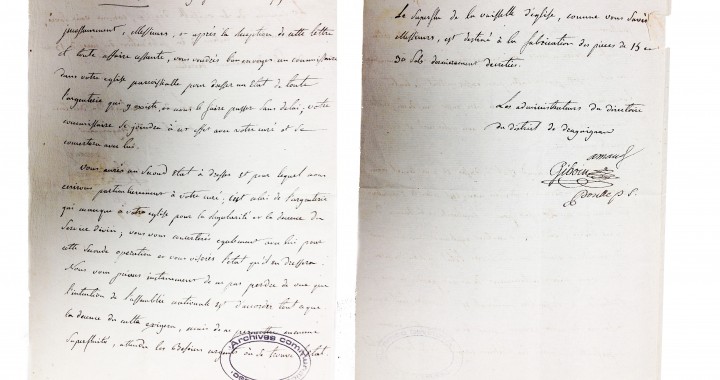 puissamment, Messieurs, et après la réception de cette lettre
et toute affaire cessante, vous voudrés bien envoyer un commissaire
dans votre eglise paroissialle pour dresser un état de toute
l'argenterie qui y existe, et nous le faire passer sans delai; votre
commissaire se joindra à cet effet avec votre curé et se
concertera avec lui.
Vous aurés un second état à dresser et pour lequel nous
ecrivons particulierement à votre curé, c'est celui de l'argenterie
qui manque à votre eglise pour la régularité et la decence du
Service divin; vous vous concerterés egalement avec lui pour
cette seconde operation et vous viserés l'état qu'il en dressera.
Nous vous prions instamment de ne pas perdre de vue que
l'intention de l'assemblée nationale est d'accorder tout ce que
la decence du culte exigera, mais de ne permettre aucune
Superfluité, attendu les Besoins urgents où se trouve l'état.
Archives comm
Le Superflu de la vaisselle d'église, comme vous Savés
Messieurs, est destiné à la fabrication des pieces de 15 et
30 Sols dernierement decretées.
Les administrateurs du directoire
du district de draguignan